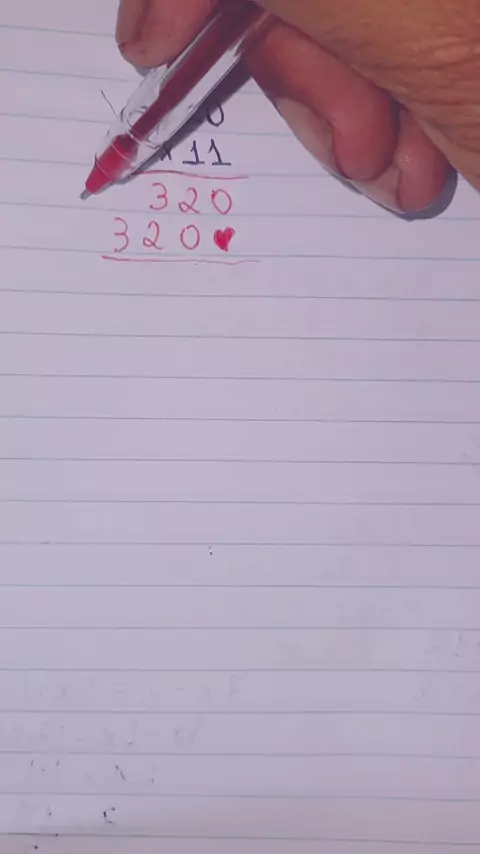 0
x 11
320
320♥